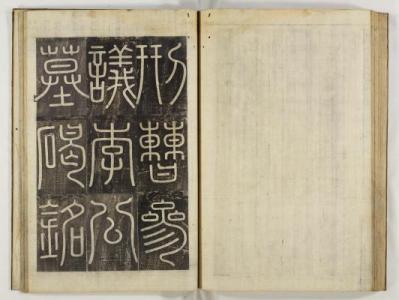 刑曹參
議李公
墓碣銘